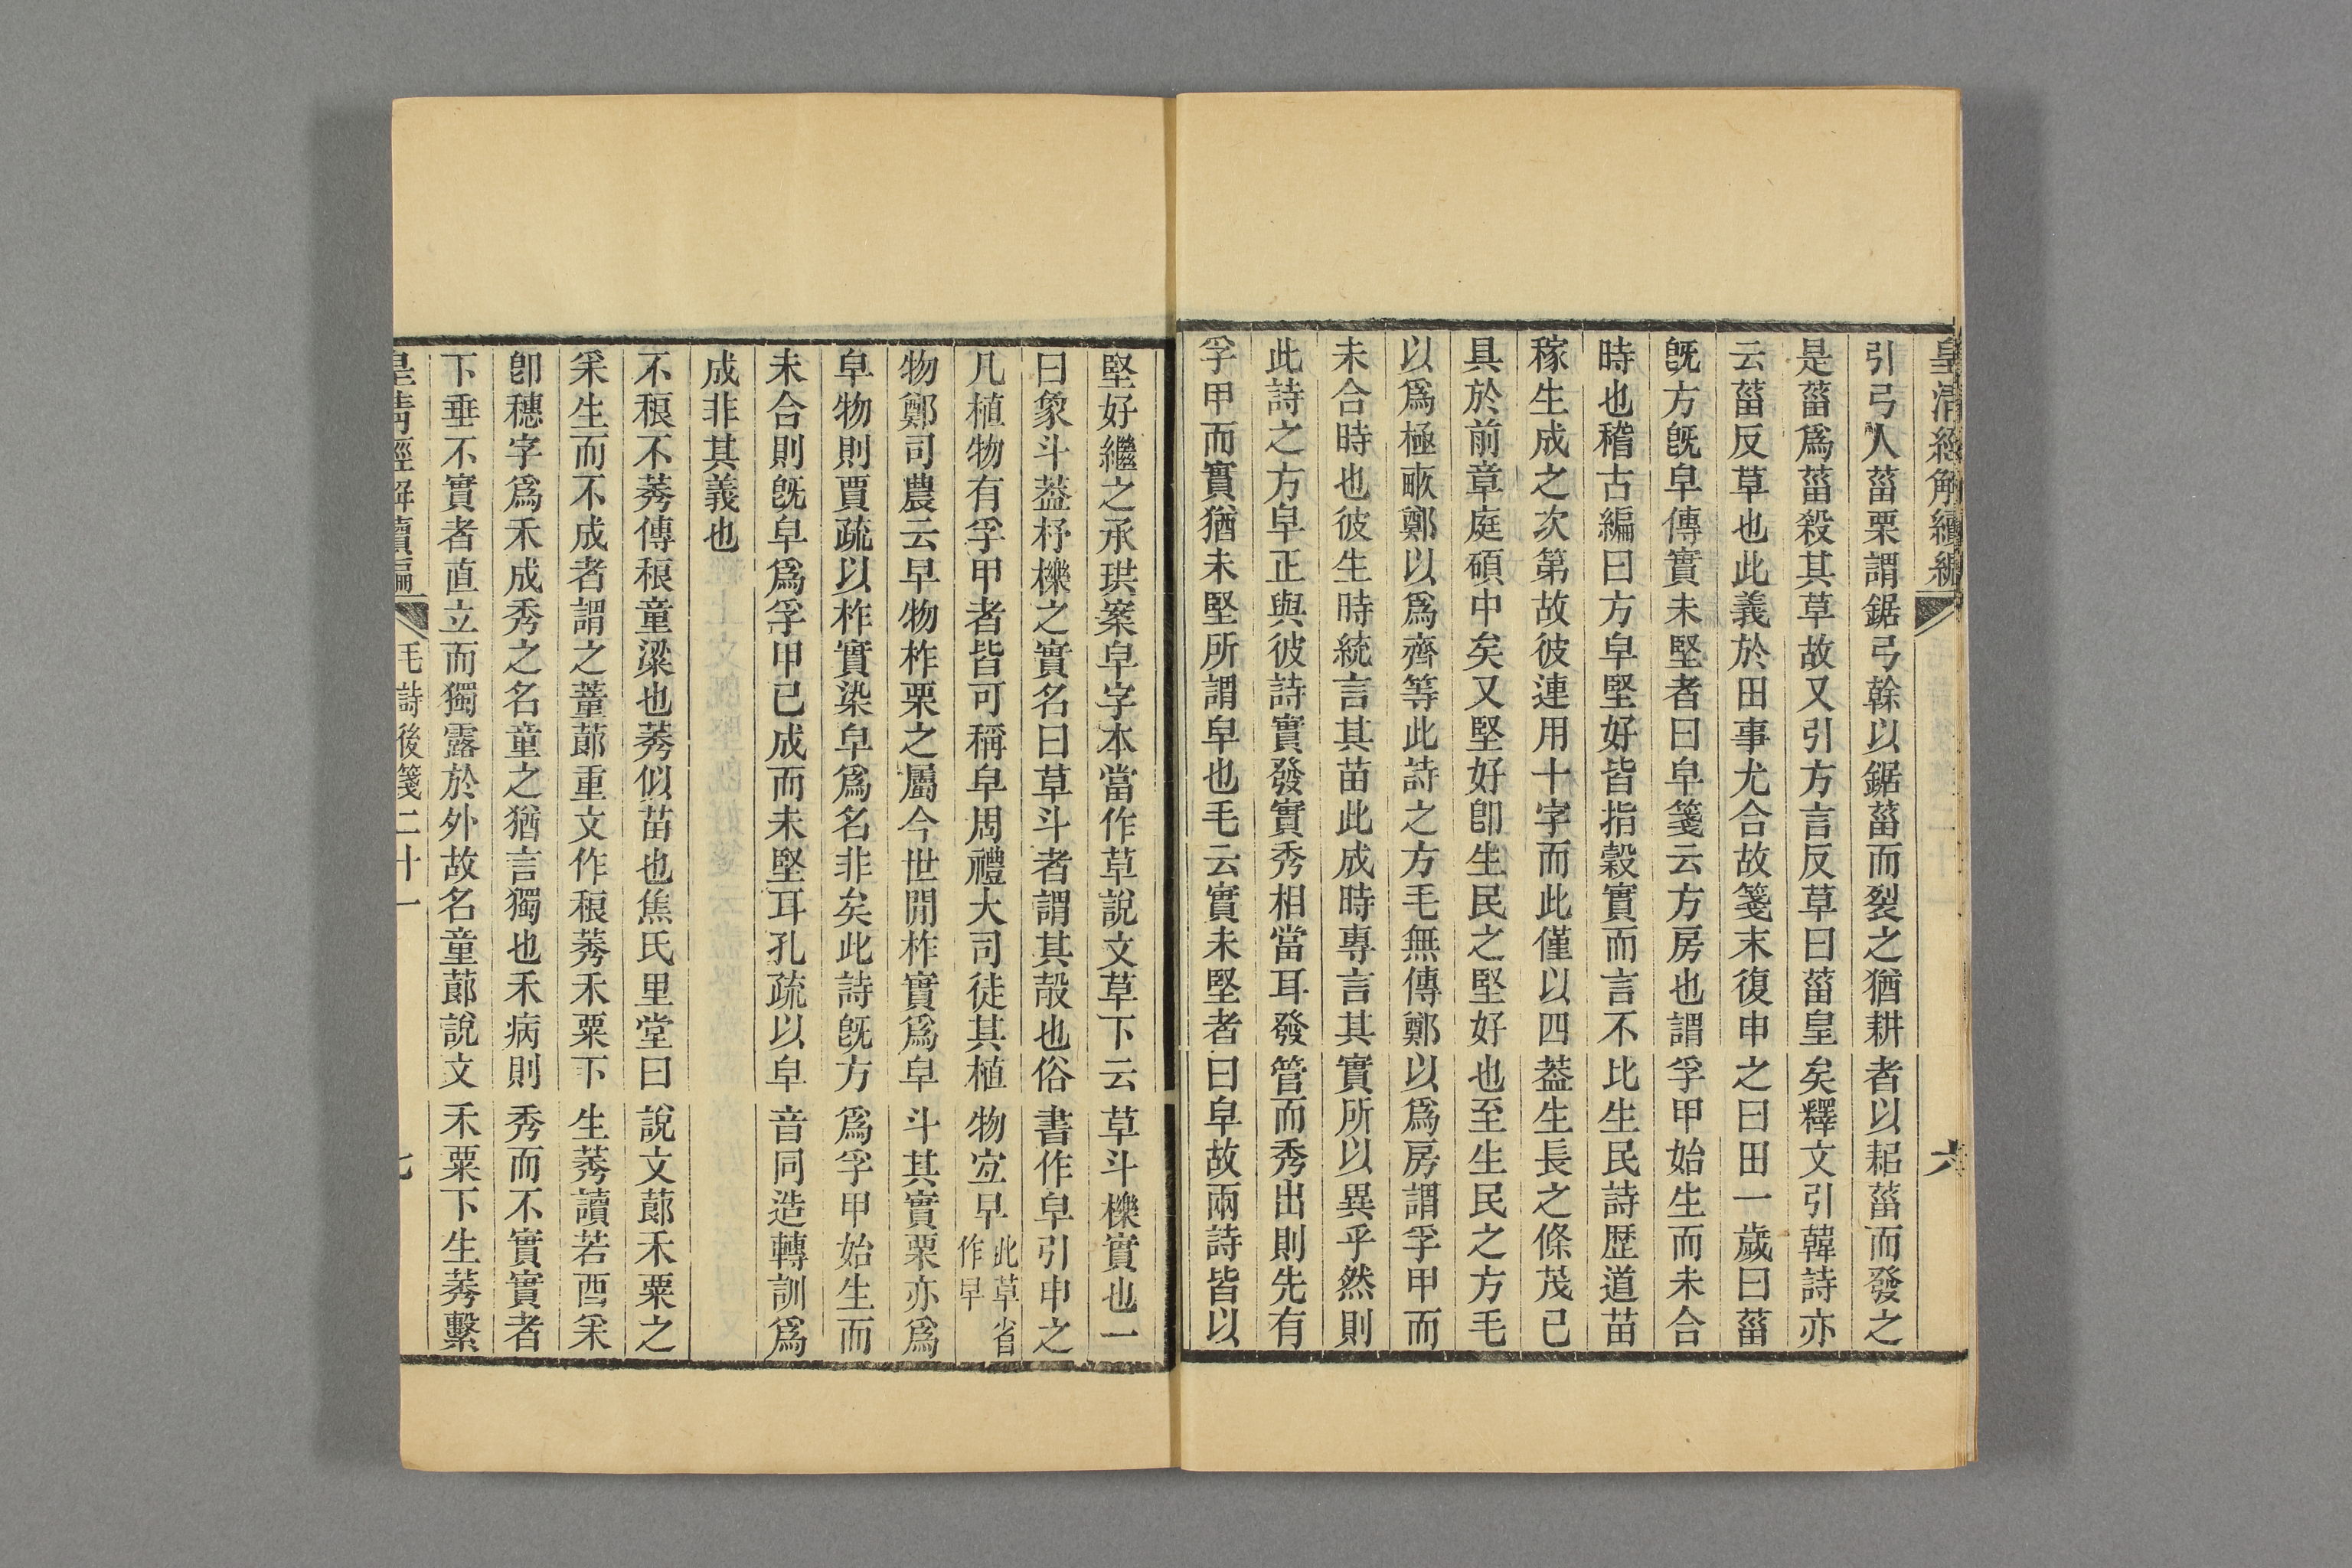 皇清經解續編 六
引弓人菑栗謂鋸弓榦以鋸菑而裂之猶耕者以耜菑而發之
是菑爲菑殺其草故又引方言反草曰菑皇矣釋文引韓詩亦
云菑反草也此義於田事尤合故箋末復申之曰田一歲曰菑
旣方旣皁傳實未堅者曰皁箋云方房也謂孚甲始生而未合
時也稽古編曰方皁堅好皆指穀實而言不比生民詩歷道苗
稼生成之次第故彼連用十字而此僅以四葢生長之條茂已
具於前章庭碩中矣又堅好卽生民之堅好也至生民之方毛
以爲極畞鄭以爲齊等此詩之方毛無傳鄭以爲房謂孚甲而
未合時也彼生時統言其苗此成時專言其實所以異乎然則
此詩之方皁正與彼詩實發實秀相當耳發管而秀出則先有
孚甲而實猶未堅所謂皁也毛云實未堅者曰皁故兩詩皆以
堅好繼之承珙案皁字本當作草說文草下云草斗櫟實也一
曰象斗葢杼櫟之實名曰草斗者謂其殻也俗書作皁引申之
凡植物有孚甲者皆可稱皁周禮大司徒其植物宐早此草省作早
物鄭司農云早物柞栗之屬今世閒柞實爲皁斗其實栗亦爲
皁物則賈疏以柞實染皁爲名非矣此詩旣方爲孚甲始生而
未合則旣皁爲孚甲已成而未堅耳孔疏以皁音同造轉訓爲
成非其義也
不稂不莠傳稂童粱也莠似苗也焦氏里堂曰說文蓈禾粟之
采生而不成者謂之蕫蓈重文作稂莠禾粟下生莠讀若酉采
卽穗字爲禾成秀之名童之猶言獨也禾病則秀而不實實者
下垂不實者直立而獨露於外故名童蓈說文禾粟下生莠繫
皇清經解續編 毛詩後箋二十一 七